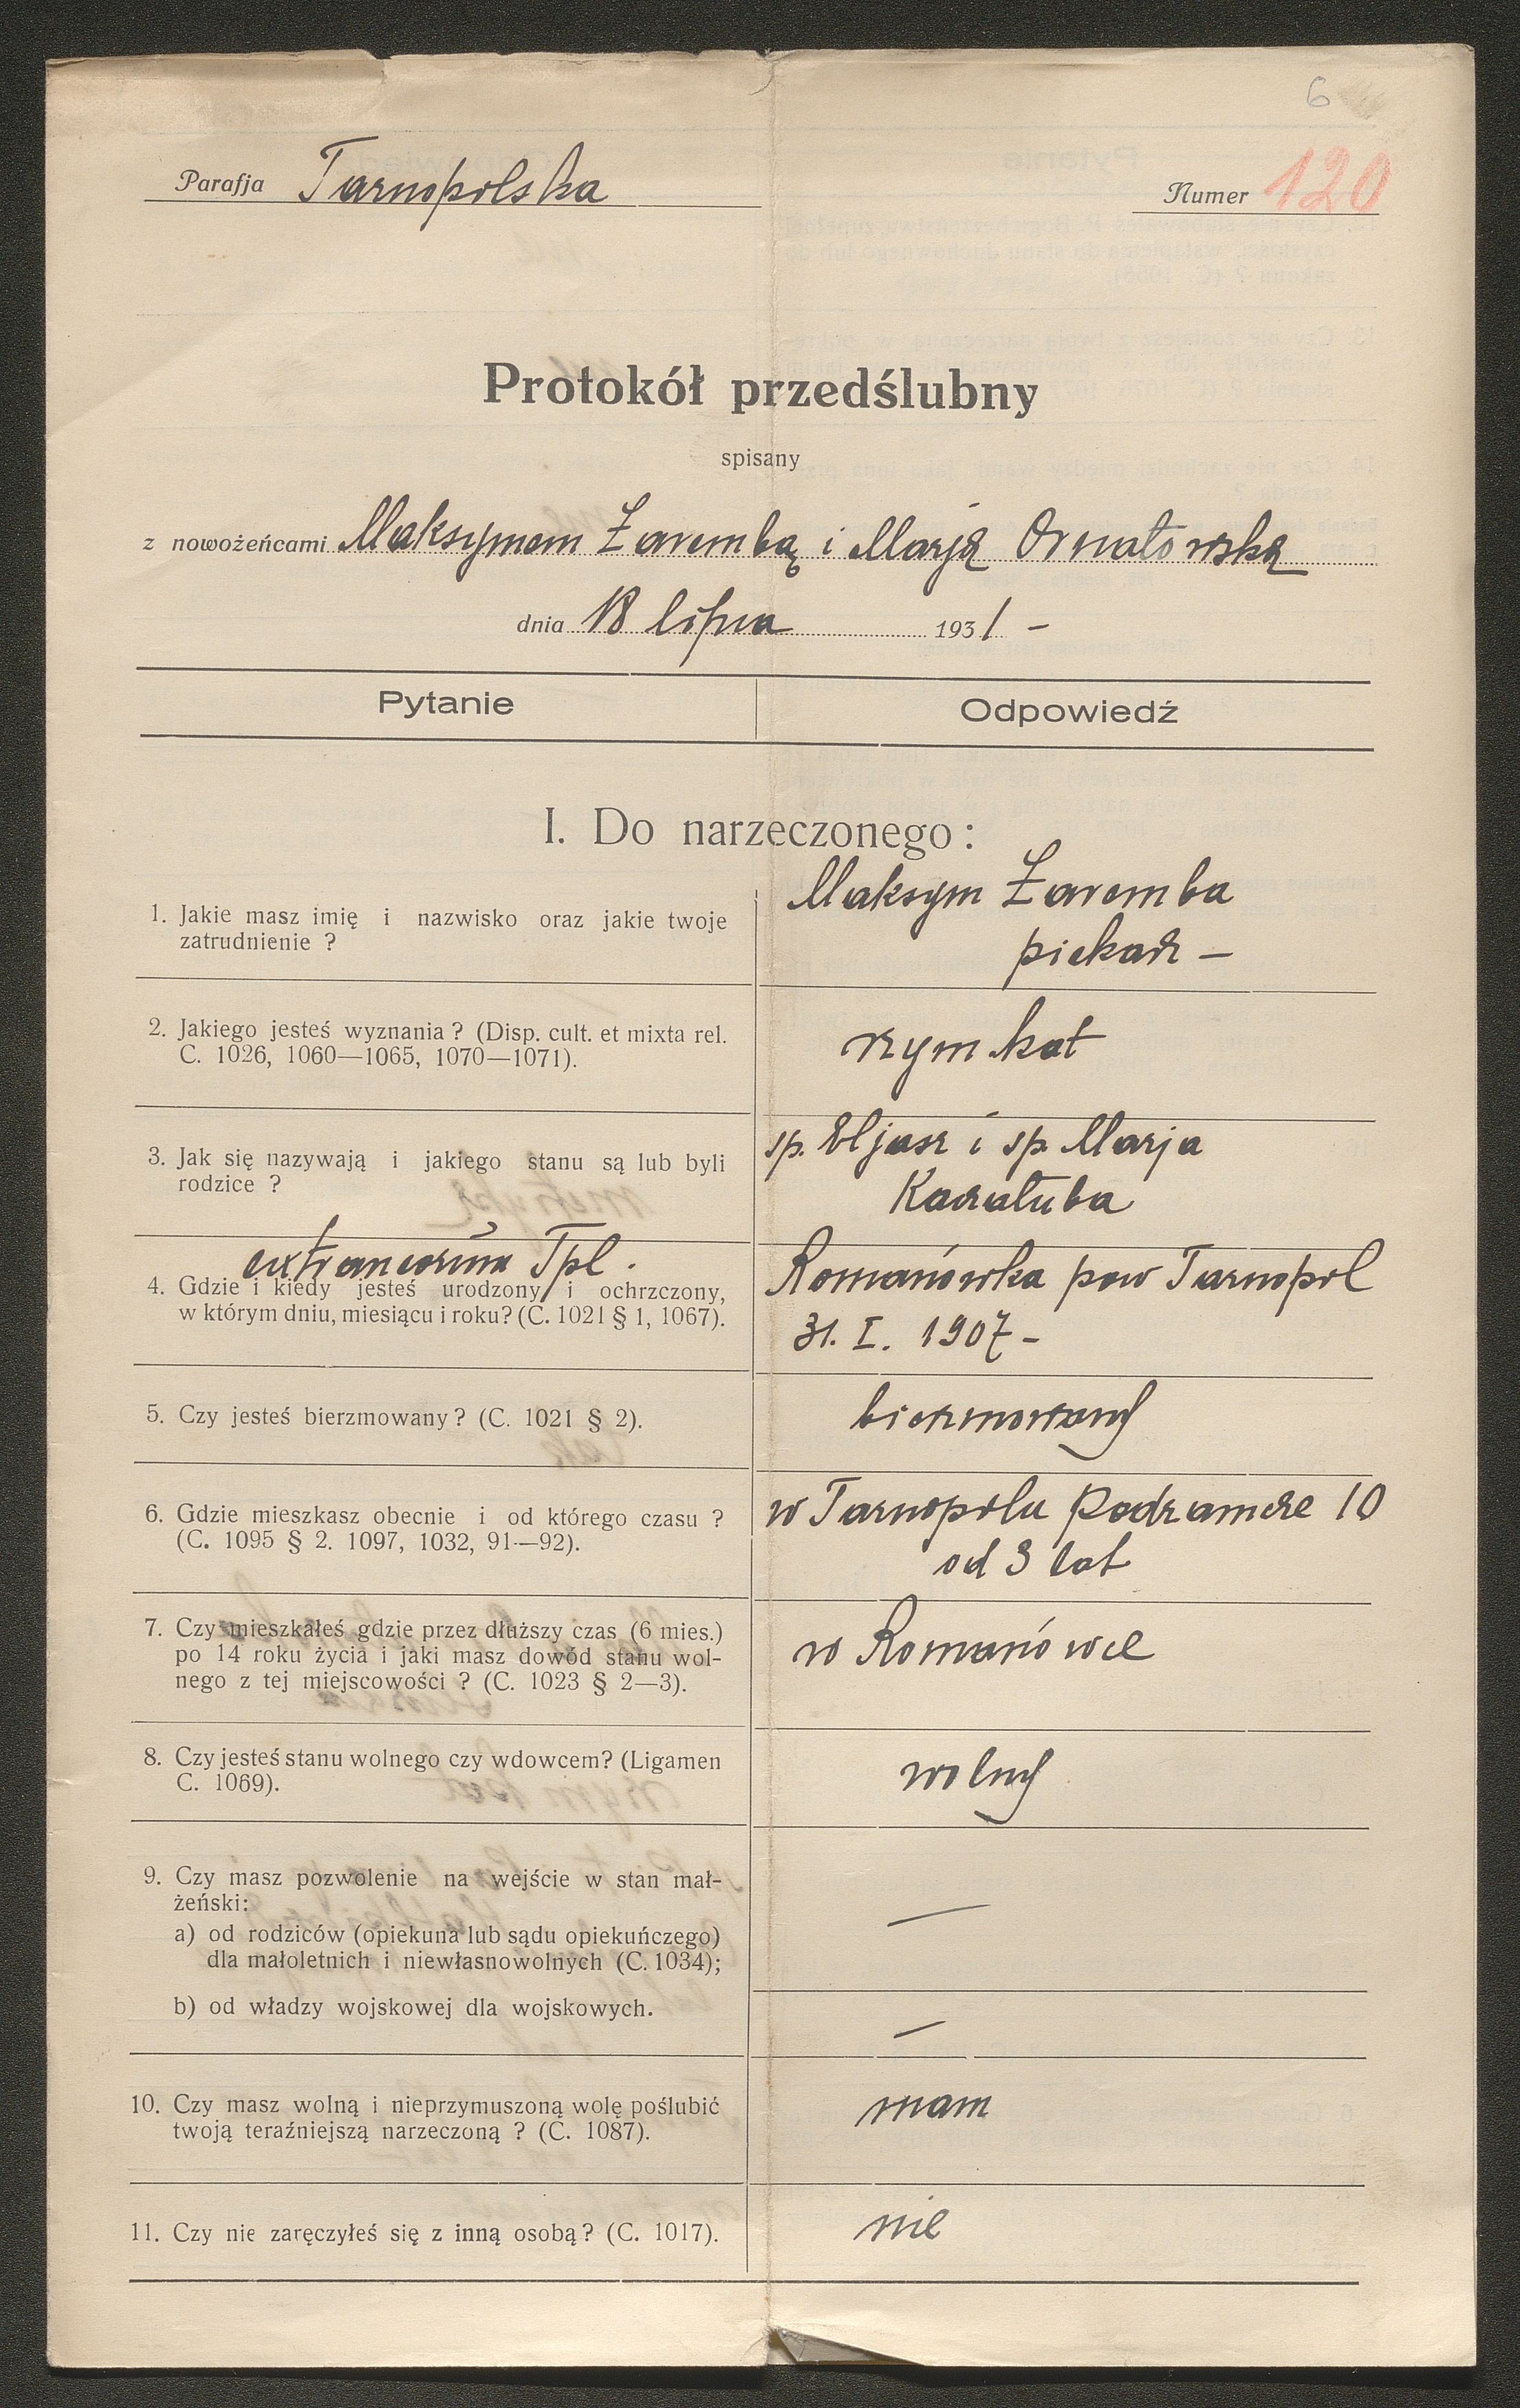 6
Parafja Tarnopolska
Numer 120
Protokół przedślubny
spisany
z nowożeńcami Maksymem Zarembą i Marją Ornatowską
dnia 18 lipca 1931 –
Pytanie
Odpowiedź
I. Do narzeczonego:
1. Jakie masz imię i nazwisko oraz jakie twoje
zatrudnienie ?
Maksym Zaremba
piekarz –
2. Jakiego jesteś wyznania ? (Disp. cult. et mixta rel.
C. 1026, 1060—1065, 1070—1071).
rzym kat
3. Jak się nazywają i jakiego stanu są lub byli
rodzice ?
sp. Eljasz i sp. Marja
Kaczałuba
extraneorum Tpl.
4. Gdzie i kiedy jesteś urodzony i ochrzczony,
w którym dniu, miesiącu i roku? (C. 1021 § 1, 1067).
Romanówka pow Tarnopol
31. I. 1907 –
5. Czy jesteś bierzmowany ? (C. 1021 § 2).
bierzmowany
6. Gdzie mieszkasz obecnie i od którego czasu ?
(C. 1095 § 2. 1097, 1032, 91—92).
w Tarnopolu Podzamcze 10
od 3 lat
7. Czy mieszkałeś gdzie przez dłuższy czas (6 mies.)
po 14 roku życia i jaki masz dowód stanu wol-
nego z tej miejscowości ? (C. 1023 § 2—3).
w Romanówce
8. Czy jesteś stanu wolnego czy wdowcem? (Ligamen
C. 1069).
wolny
9. Czy masz pozwolenie na wejście w stan mał-
żeński:
a) od rodziców (opiekuna lub sądu opiekuńczego)
dla małoletnich i niewłasnowolnych (C. 1034);
—
b) od władzy wojskowej dla wojskowych.
—
10. Czy masz wolną i nieprzymuszoną wolę poślubić
twoją teraźniejszą narzeczoną ? (C. 1087).
mam
11. Czy nie zaręczyłeś się z inną osobą ? (C. 1017).
nie